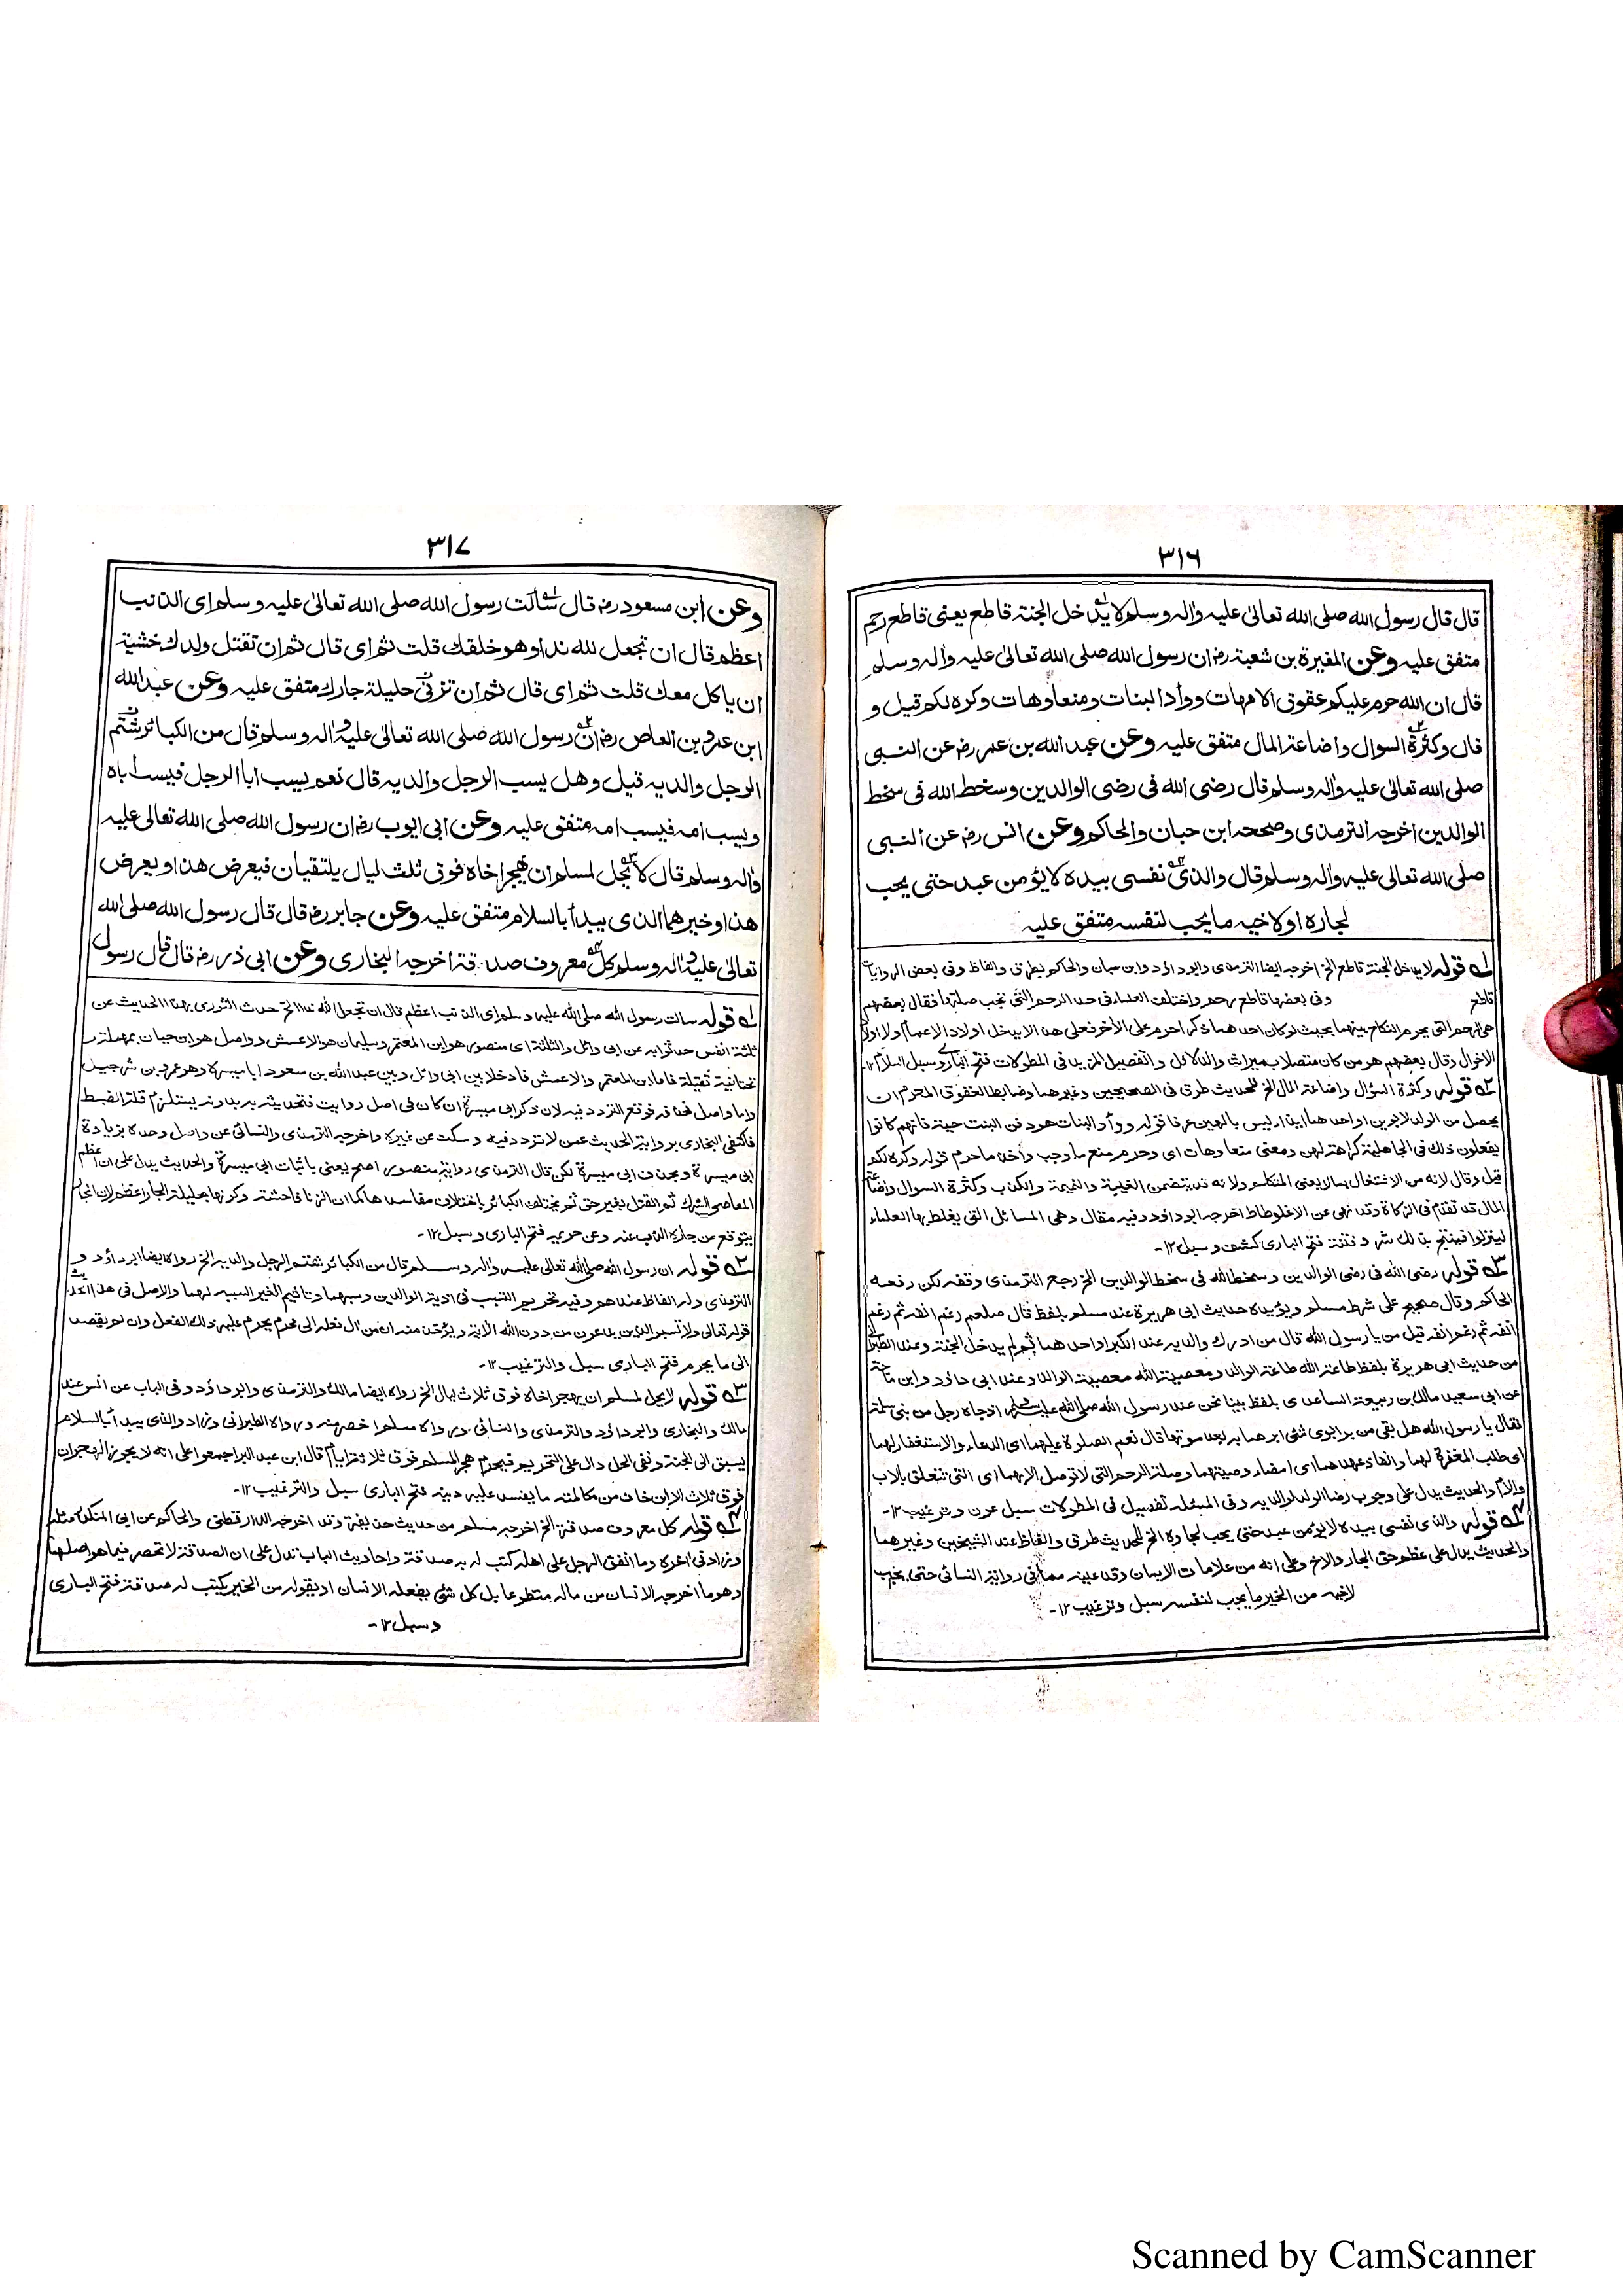 ٣١٦
قال قال رسول الله صلى الله تعالىٰ عليه واٰله وسلم لا يدخل الجنة قاطع يعنى قاطع رحم
متفق عليه وعن المغيرة بن شعبة رض ان رسول الله صلى الله تعالىٰ عليه واٰله وسلم
قال ان الله حرم عليكم عقوق الامهات ووأد البنات ومنعا وهات وكره لكم قيل و
قال وكثرة السوال واضاعة المال متفق عليه وعن عبد الله بن عمر رض عن النبى
صلى الله تعالىٰ عليه واٰله وسلم قال رضى الله فى رضى الوالدين وسخط الله فى سخط
الوالدين اخرجه الترمذى وصححه ابن حبان والحاكم وعن انس رض عن النبى
صلى الله تعالىٰ عليه واٰله وسلم قال والذى نفسى بيده لا يؤمن عبد حتى يحب
لجاره او لاخيه ما يحب لنفسه متفق عليه
١ قوله لا يدخل الجنة قاطع الخ اخرجه ايضا الترمذى وابو داؤد وابن حبان والحاكم بطرق والفاظ وفى بعض الروايات
قاطع وفى بعضها قاطع رحم واختلف العلماء فى حد الرحم التى تجب صلتها فقال بعضهم
هى الرحم التى يحرم النكاح بينهما بحيث لو كان احدهما ذكرا حرم على الآخر فعلى هذا لا يدخل اولاد الاعمام ولا اولاد
الاخوال وقال بعضهم هو من كان متصلا بميراث والدلائل والتفصيل المزيد فى المطولات فتح البارى وسبل السلام ١٢-
٢ قوله وكثرة السؤال واضاعة المال الخ للحديث طرق فى الصحيحين وغيرهما وضابط العقوق المحرم ان
يحصل من الولد لابوين او احدهما ايذاء ليس بالهين عرفا قوله ووأد البنات هو دفن البنت حية فانهم كانوا
يفعلون ذلك فى الجاهلية كراهة لهن ومعنى منعا وهات اى وحرم منع ما وجب وأخذ ما حرم قوله وكره لكم
قيل وقال لانه من الاشتغال بما لا يعنى المتكلم ولانه قد يتضمن الغيبة والنميمة والكذب وكثرة السوال واضاعة
المال قد تقدم فى الزكاة وقد نهى عن الاغلوطاط اخرجه ابو داؤد وفيه مقال وهى المسائل التى يغلط بها العلماء
ليزلوا فيهيج بذلك شر وفتنة فتح البارى كشف وسبل ١٢-
٣ قوله رضى الله فى رضى الوالدين وسخط الله فى سخط الوالدين الخ رجع الترمذى وقفه لكن رفعه
الحاكم وقال صحيح على شرط مسلم ويؤيده حديث ابى هريرة عند مسلم بلفظ قال صلعم رغم انفه ثم رغم
انفه ثم رغم انفه قيل من يا رسول الله قال من ادرك والديه عند الكبر او احدهما ثم لم يدخل الجنة وعند الطبرانى
من حديث ابى هريرة بلفظ طاعة الله طاعة الوالد ومعصية الله معصية الوالد وعند ابى داؤد وابن ماجة
عن ابى سعيد مالك بن ربيعة الساعدى بلفظ بينا نحن عند رسول الله صلى الله عليه وسلم اذ جاءه رجل من بنى سلمة
فقال يا رسول الله هل بقى من بر ابوى شئ ابرهما به بعد موتهما قال نعم الصلوة عليهما اى الدعاء والاستغفار لهما
اى طلب المغفرة لهما وانفاذ عهدهما اى امضاء وصيتهما وصلة الرحم التى لا توصل الا بهما اى التى تتعلق بالاب
والام والحديث يدل على وجوب رضا الولد لوالديه وفى المسئلة تفصيل فى المطولات سبل عون وترغيب ١٢-
٤ قوله والذى نفسى بيده لا يؤمن عبد حتى يحب لجاره الخ للحديث طرق والفاظ عند الشيخين وغيرهما
والحديث يدل على عظم حق الجار والاخ وعلى انه من علامات الايمان وقد عينه فى رواية النسائى حتى يحب
لاخيه من الخير ما يحب لنفسه سبل وترغيب ١٢-
٣١٧
وعن ابن مسعود رض قال سألت رسول الله صلى الله تعالىٰ عليه وسلم اى الذنب
اعظم قال ان تجعل لله ندا وهو خلقك قلت ثم اى قال ثم ان تقتل ولدك خشية
ان ياكل معك قلت ثم اى قال ثم ان تزنى حليلة جارك متفق عليه وعن عبد الله
ابن عمرو بن العاص رض ان رسول الله صلى الله تعالىٰ عليه واٰله وسلم قال من الكبائر شتم
الرجل والديه قيل وهل يسب الرجل والديه قال نعم يسب ابا الرجل فيسب اباه
ويسب امه فيسب امه متفق عليه وعن ابى ايوب رض ان رسول الله صلى الله تعالىٰ عليه
واٰله وسلم قال لا يحل لمسلم ان يهجر اخاه فوق ثلث ليال يلتقيان فيعرض هذا ويعرض
هذا وخيرهما الذى يبدأ بالسلام متفق عليه وعن جابر رض قال قال رسول الله صلى الله
تعالىٰ عليه واٰله وسلم كل معروف صدقة اخرجه البخارى وعن ابى ذر رض قال قال رسول
١ قوله سالت رسول الله صلى الله عليه وسلم اى الذنب اعظم قال ان تجعل الله ندا الخ حدث الثورى بهذا الحديث عن
ثلثة انفس حدثوا به عن ابى وائل والثلثة اى منصور هو ابن المعتمر وسليمان هو الاعمش وواصل هو ابن حبان بمهملة
تحتانية ثقيلة فاما ابن المعتمر والاعمش فادخلا بين ابى وائل وبين عبد الله بن سعود ابا ميسرة وهو عمرو بن شرجيل
واما واصل فحذفه فوقع التردد فيه لان ذكر ابى ميسرة ان كان فى اصل روايت فتحديثه به بدونه يستلزم قلة الضبط
فاكتفى البخارى برواية الحديث عمن لا تردد فيه وسكت عن غيره واخرجه الترمذى والنسائى عن واصل وحده بزيادة
ابى ميسرة وبحذف ابى ميسرة لكن قال الترمذى رواية منصور اصح يعنى باثبات ابى ميسرة والحديث يدل على ان اعظم
المعاصى الشرك ثم القتل بغير حق ثم يختلف الكبائر باختلاف مفاسدها كما ان الزنا فاحشة وكونها بحليلة الجار اعظم لان الجار
يتوقع من جاره الذب عنه وعن حريمه فتح البارى وسبل ١٢-
٢ قوله ان رسول الله صلى الله تعالى عليه واله وسلم قال من الكبائر شتم الرجل والديه الخ رواه ايضا ابو داؤد و
الترمذى وله الفاظ عندهم وفيه تحريم التسبب فى اذية الوالدين وسبهما وتاثيم الغير السببه لهما والاصل فى هذا الحديث
قوله تعالى ولا تسبوا الذين يدعون من دون الله الآية ويؤخذ منه ان من آل فعله الى محرم يحرم عليه ذلك الفعل وان لم يقصد
الى ما يحرم فتح البارى سبل والترغيب ١٢-
٣ قوله لا يحل لمسلم ان يهجر اخاه فوق ثلاث ليال الخ رواه ايضا مالك والترمذى وابو داؤد وفى الباب عن انس عند
مالك والبخارى وابو داؤد والترمذى والنسائى ورواه مسلم اخصر منه ورواه الطبرانى وزاد والذى يبدأ بالسلام
يسبق الى الجنة ونفى الحل دال على التحريم فيحرم هجر المسلم فوق ثلاثة ايام قال ابن عبد البر اجمعوا على انه لا يجوز الهجران
فوق ثلاث الا لمن خاف من مكالمته ما يفسد عليه دينه فتح البارى سبل والترغيب ١٢-
٤ قوله كل معروف صدقة الخ اخرجه مسلم من حديث حذيفة وقد اخرجه الدارقطنى والحاكم عن ابى المنكدر مثله
وزاد فى اخره وما انفق الرجل على اهله كتب له به صدقة واحاديث الباب تدل على ان الصدقة لا تحصر فيما هو اصلها
وهو ما اخرجه الانسان من ماله متطوعا بل كل شئ يفعله الانسان او يقوله من الخير يكتب له صدقة فتح البارى
وسبل ١٢-
Scanned by CamScanner